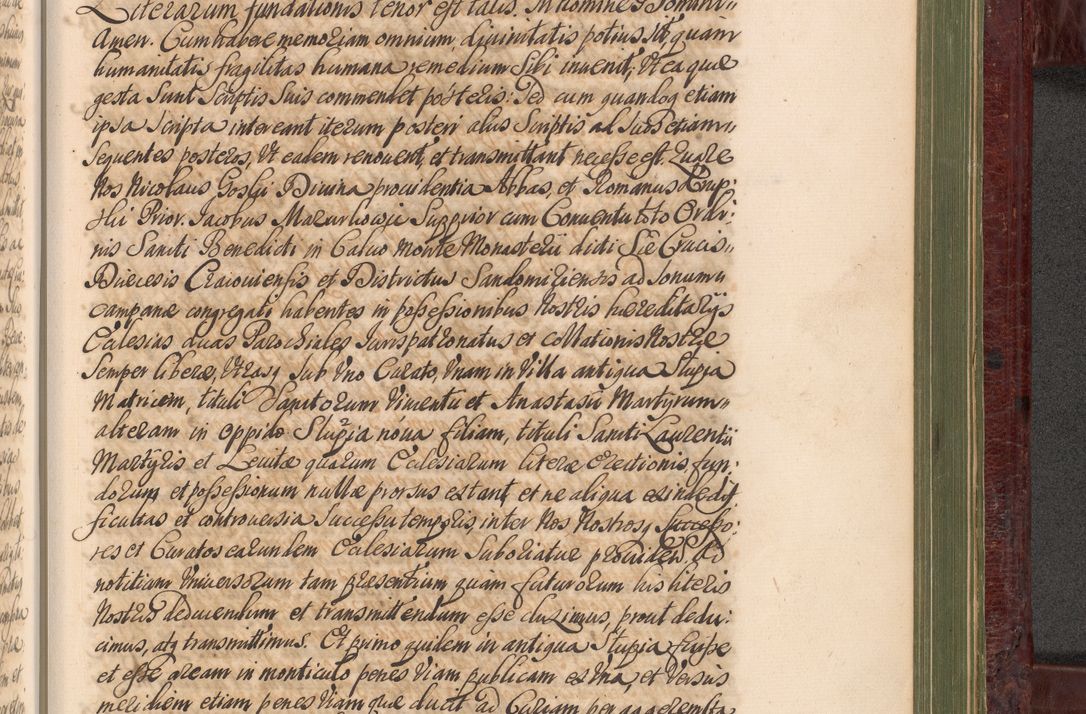 Literarum fundationis tenor est talis. In nomine Domini„
Amen. Cum habere memoriam omnium, divinitatis potius sit, quam
humanitatis, fragilitas humana remedium sibi invenit, Ut ea quæ
gesta sunt Scriptis suis commendet posteris: Sed cum quandoq etiam
ipsa Scripta intereant iterum posteri aliis Scriptis ad subsetiam„
sequentes posteros, Ut eadem renovent, et transmittant necesse est. Quare
Nos Nicolaus Goski Divina providentia Abbas, et Romanus Krup-
ski Prior. Jacobus Mazurkowic Supprior cum Conventu toto Ordi:
nis Sancti Benedicti in Calvo Monte Monasterii dicti Sae Crucis„
Diæcesis Cracoviensis et Districtus Sandomiriensis ad sonum
campanæ congregati habentes in possessionibus Nostris hæreditarijs
Eclesias duas Parochiales Jurispatronatus et collationis Nostræ
semper liberæ, Utrasq sub Uno Curato, Unam in Villa antiqua Slupia
Matricem, tituli Sanctorum Vincentii et Anastasii Martyrum„
alteram in oppido Slupia nova filiam, tituli Sancti Laurentii
Martyris et Levitæ quarum Eclesiarum literæ erectionis fun:
dorum et possessionum nullæ prorsus extant et ne aliqua exinde dif
ficultas et controversia Successu temporis, inter Nos Nostrosq Successo:
res et Curatos earundem Eclesiarum Suboriatur providen, ad
notitiam Universorum tam præsentium quam futurorum his literis
Nostris deducendum et transmittendum esse duximus, prout dedu:
cimus, atq transmittimus. Et primo quidem in antiqua Slupia fuisse
et esse aream in monticulo penes Viam publicam ex Una, et Versus
meridiem etiam penes Viam quæ ducit ad Curiam per